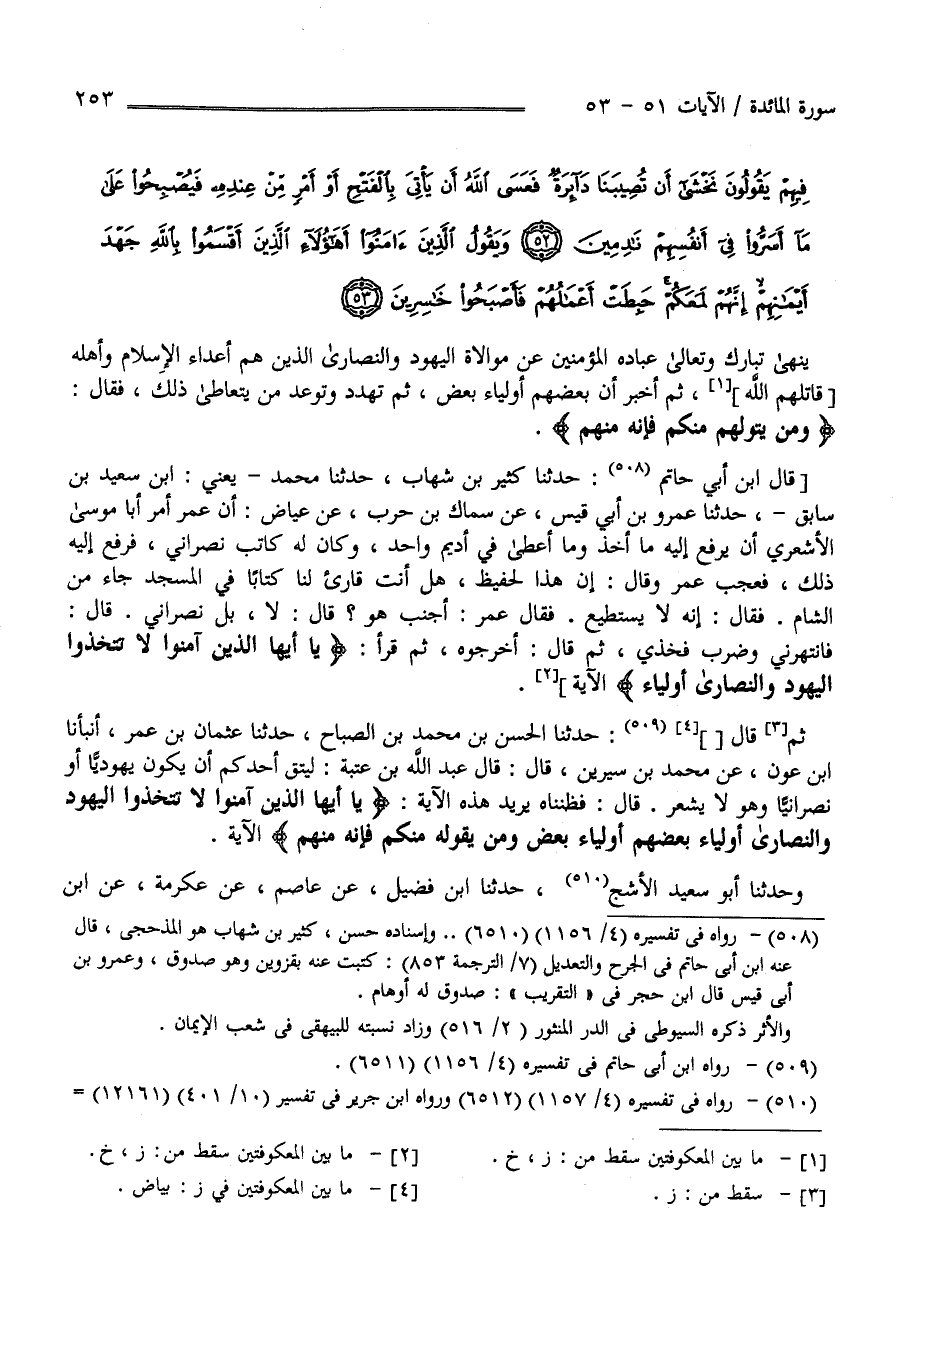 سورة المائدة / الآيات ٥١ - ٥٣ ٢٥٣
فِيهِمْ يَقُولُونَ نَخْشَىٰٓ أَن تُصِيبَنَا دَآئِرَةٌ ۚ فَعَسَى ٱللَّهُ أَن يَأْتِىَ بِٱلْفَتْحِ أَوْ أَمْرٍ مِّنْ عِندِهِۦ فَيُصْبِحُوا۟ عَلَىٰ
مَآ أَسَرُّوا۟ فِىٓ أَنفُسِهِمْ نَـٰدِمِينَ ٥٢ وَيَقُولُ ٱلَّذِينَ ءَامَنُوٓا۟ أَهَـٰٓؤُلَآءِ ٱلَّذِينَ أَقْسَمُوا۟ بِٱللَّهِ جَهْدَ
أَيْمَـٰنِهِمْ ۙ إِنَّهُمْ لَمَعَكُمْ ۚ حَبِطَتْ أَعْمَـٰلُهُمْ فَأَصْبَحُوا۟ خَـٰسِرِينَ ٥٣
ينهىٰ تبارك وتعالىٰ عباده المؤمنين عن موالاة اليهود والنصارىٰ الذين هم أعداء الإسلام وأهله
[ قاتلهم اللَّه ][١] ، ثم أخبر أن بعضهم أولياء بعض ، ثم تهدد وتوعد من يتعاطىٰ ذلك ، فقال :
﴿ ومن يتولهم منكم فإنه منهم ﴾ .
[ قال ابن أبي حاتم (٥٠٨) : حدثنا كثير بن شهاب ، حدثنا محمد - يعني : ابن سعيد بن
سابق - ، حدثنا عمرو بن أبي قيس ، عن سماك بن حرب ، عن عياض : أن عمر أمر أبا موسىٰ
الأشعري أن يرفع إليه ما أخذ وما أعطىٰ في أديم واحد ، وكان له كاتب نصراني ، فرفع إليه
ذلك ، فعجب عمر وقال : إن هذا لحفيظ ، هل أنت قارئ لنا كتابًا في المسجد جاء من
الشام . فقال : إنه لا يستطيع . فقال عمر : أجنب هو ؟ قال : لا ، بل نصراني . قال :
فانتهرني وضرب فخذي ، ثم قال : أخرجوه ، ثم قرأ : ﴿ يا أيها الذين آمنوا لا تتخذوا
اليهود والنصارىٰ أولياء ﴾ الآية ][٢] .
ثم[٣] قال [ ][٤] (٥٠٩) : حدثنا الحسن بن محمد بن الصباح ، حدثنا عثمان بن عمر ، أنبأنا
ابن عون ، عن محمد بن سيرين ، قال : قال عبد اللَّه بن عتبة : ليتق أحدكم أن يكون يهوديًّا أو
نصرانيًّا وهو لا يشعر . قال : فظنناه يريد هذه الآية : ﴿ يا أيها الذين آمنوا لا تتخذوا اليهود
والنصارىٰ أولياء بعضهم أولياء بعض ومن يقوله منكم فإنه منهم ﴾ الآية .
وحدثنا أبو سعيد الأشج(٥١٠) ، حدثنا ابن فضيل ، عن عاصم ، عن عكرمة ، عن ابن
(٥٠٨) - رواه فى تفسيره (٤/ ١١٥٦) (٦٥١٠) .. وإسناده حسن ، كثير بن شهاب هو المذحجى ، قال
عنه ابن أبى حاتم فى الجرح والتعديل (٧/ الترجمة ٨٥٣) : كتبت عنه بقزوين وهو صدوق ، وعمرو بن
أبى قيس قال ابن حجر فى « التقريب » : صدوق له أوهام .
والأثر ذكره السيوطى فى الدر المنثور ( ٢/ ٥١٦) وزاد نسبته للبيهقى فى شعب الإيمان .
(٥٠٩) - رواه ابن أبى حاتم فى تفسيره (٤/ ١١٥٦) (٦٥١١) .
(٥١٠) - رواه فى تفسيره (٤/ ١١٥٧) (٦٥١٢) ورواه ابن جرير فى تفسير (١٠/ ٤٠١) (١٢١٦١) =
[١] - ما بين المعكوفتين سقط من : ز ، خ . [٢] - ما بين المعكوفتين سقط من: ز ، خ .
[٣] - سقط من : ز . [٤] - ما بين المعكوفتين في ز : بياض .